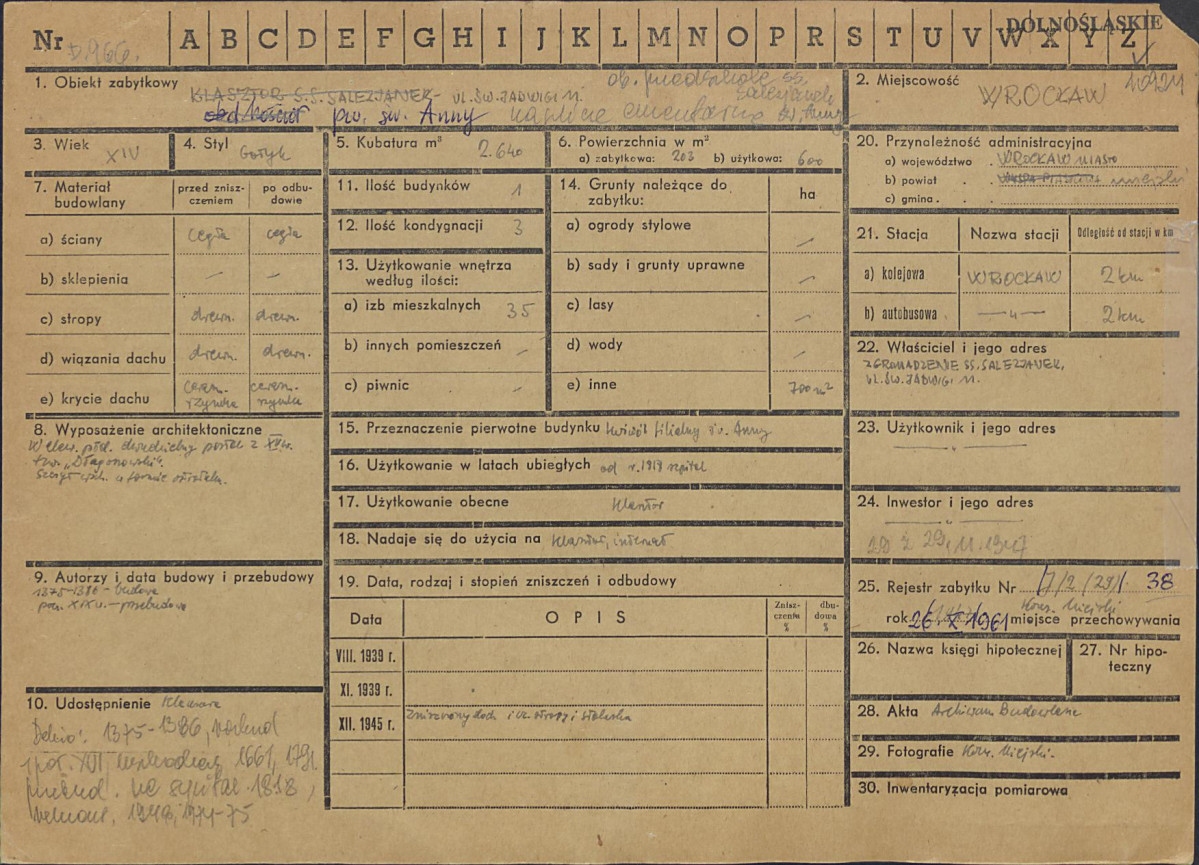 Nr A B C D E F G H I J K L M N O P R S T U V W X Y Z
DOLNOŚLĄSKIE
1. Obiekt zabytkowy
ob. przedszkole SS. Salezjanek
KLASZTOR S.S. SALEZJANEK - UL. ŚW. JADWIGI 11.
kościół pw. św. Anny kaplica cmentarna św. Anny
2. Miejscowość
WROCŁAW
3. Wiek XIV
4. Styl Gotyk
5. Kubatura m³ 2.640
6. Powierzchnia w m²
a) zabytkowa: 203 b) użytkowa: 600
7. Materiał budowlany
przed zniszczeniem
po odbudowie
a) ściany cegła cegła
b) sklepienia — —
c) stropy drewn. drewn.
d) wiązania dachu drewn. drewn.
e) krycie dachu ceram. rzymka ceram. rzymka
8. Wyposażenie architektoniczne
9. Autorzy i data budowy i przebudowy
1375-1386 - budowa
pocz. XIX w. - przebudowa
10. Udostępnienie
Dehio: 1375-1386,
1661, 1791
na szpital 1818,
1974-75
11. Ilość budynków 1
12. Ilość kondygnacji 3
13. Użytkowanie wnętrza według ilości:
a) izb mieszkalnych 35
b) innych pomieszczeń —
c) piwnic —
14. Grunty należące do zabytku:
ha
a) ogrody stylowe —
b) sady i grunty uprawne —
c) lasy —
d) wody —
e) inne 700 m²
15. Przeznaczenie pierwotne budynku kościół filialny św. Anny
16. Użytkowanie w latach ubiegłych od r. 1818 szpital
17. Użytkowanie obecne klasztor
18. Nadaje się do użycia na klasztor, internat
19. Data, rodzaj i stopień zniszczeń i odbudowy
Data
OPIS
Zniszczenia %
dbudowa %
VIII. 1939 r.
XI. 1939 r.
XII. 1945 r. Zniszczony dach i cz. stropy i stolarka
20. Przynależność administracyjna
a) województwo . WROCŁAW MIASTO
b) powiat . . miejski
c) gmina . .
21. Stacja
Nazwa stacji
Odległość od stacji w km
a) kolejowa WROCŁAW 2 km
b) autobusowa — „ — 2 km
22. Właściciel i jego adres
ZGROMADZENIE SS. SALEZJANEK,
UL. ŚW. JADWIGI 11.
23. Użytkownik i jego adres
— „ —
24. Inwestor i jego adres
— „ —
25. Rejestr zabytku Nr 38
rok 26. X 1961 miejsce przechowywania
Kons. Miejski
26. Nazwa księgi hipotecznej
27. Nr hipoteczny
28. Akta Archiwum Budowlane
29. Fotografie Kons. Miejski.
30. Inwentaryzacja pomiarowa